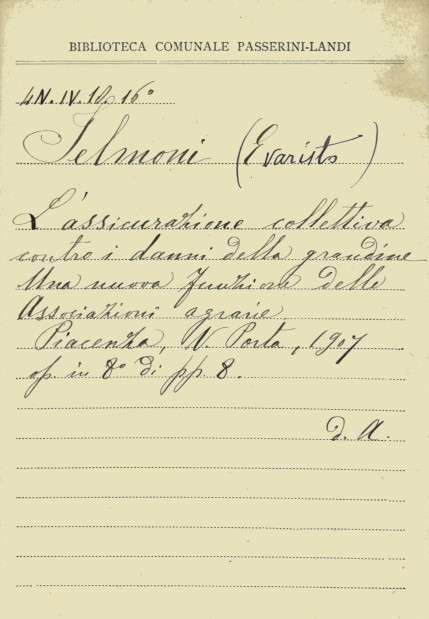 BIBLIOTECA COMUNALE PASSERINI-LANDI
4N.IV.10.16°
Selmoni (Evaristo)
L'assicurazione collettiva
contro i danni della grandine
Una nuova funzione delle
Associazioni agrarie
Piacenza, N. Porta, 1907
op. in 8° di pp. 8.
d. A.